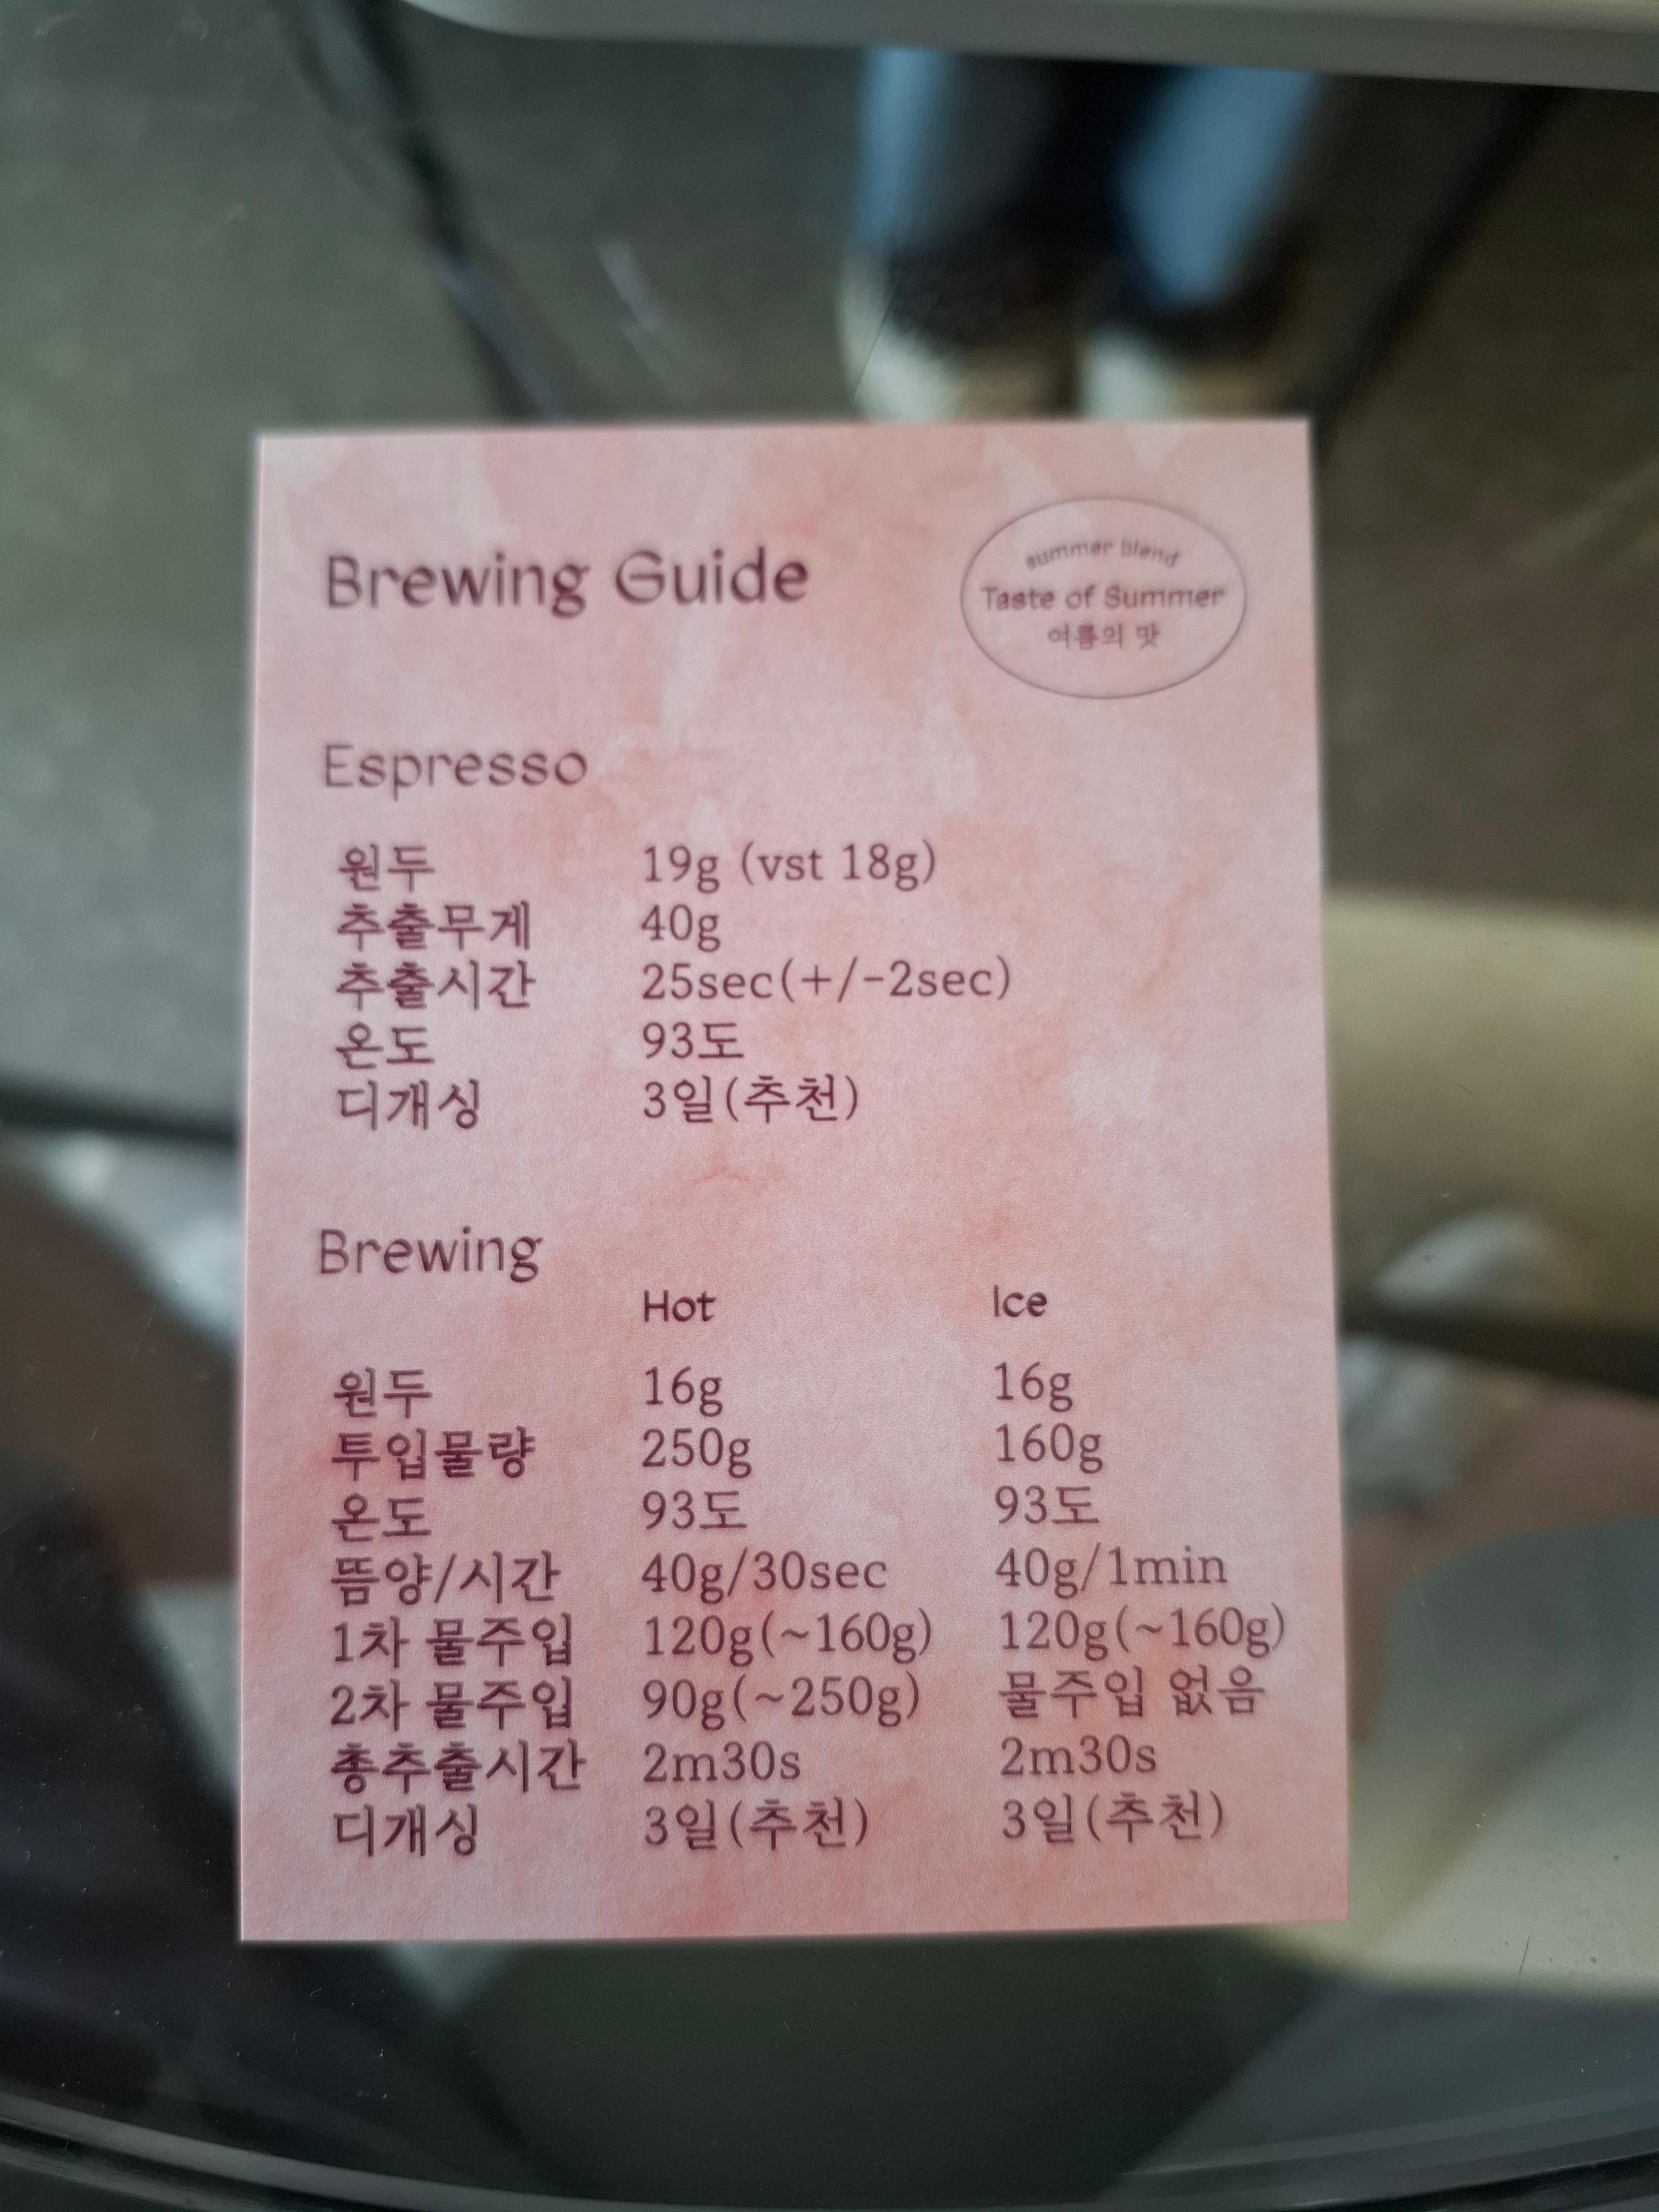 Brewing Guide
summer blend
Taste of Summer
여름의 맛
Espresso
원두 19g (vst 18g)
추출무게 40g
추출시간 25sec(+/-2sec)
온도 93도
디개싱 3일(추천)
Brewing
Hot Ice
원두 16g 16g
투입물량 250g 160g
온도 93도 93도
뜸양/시간 40g/30sec 40g/1min
1차 물주입 120g(~160g) 120g(~160g)
2차 물주입 90g(~250g) 물주입 없음
총추출시간 2m30s 2m30s
디개싱 3일(추천) 3일(추천)